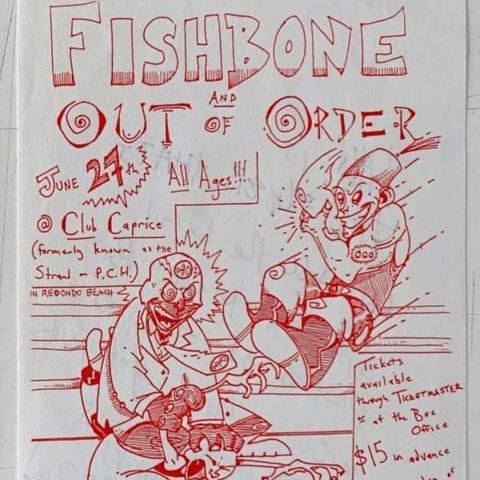 FISHBONE
AND
OUT OF ORDER
JUNE 27th All Ages!!!!
@ Club Caprice
(formerly known as the
Strand on P.C.H.)
IN REDONDO BEACH
Tickets
available
through TICKETMASTER
at the Box
Office
$15 in advance
of